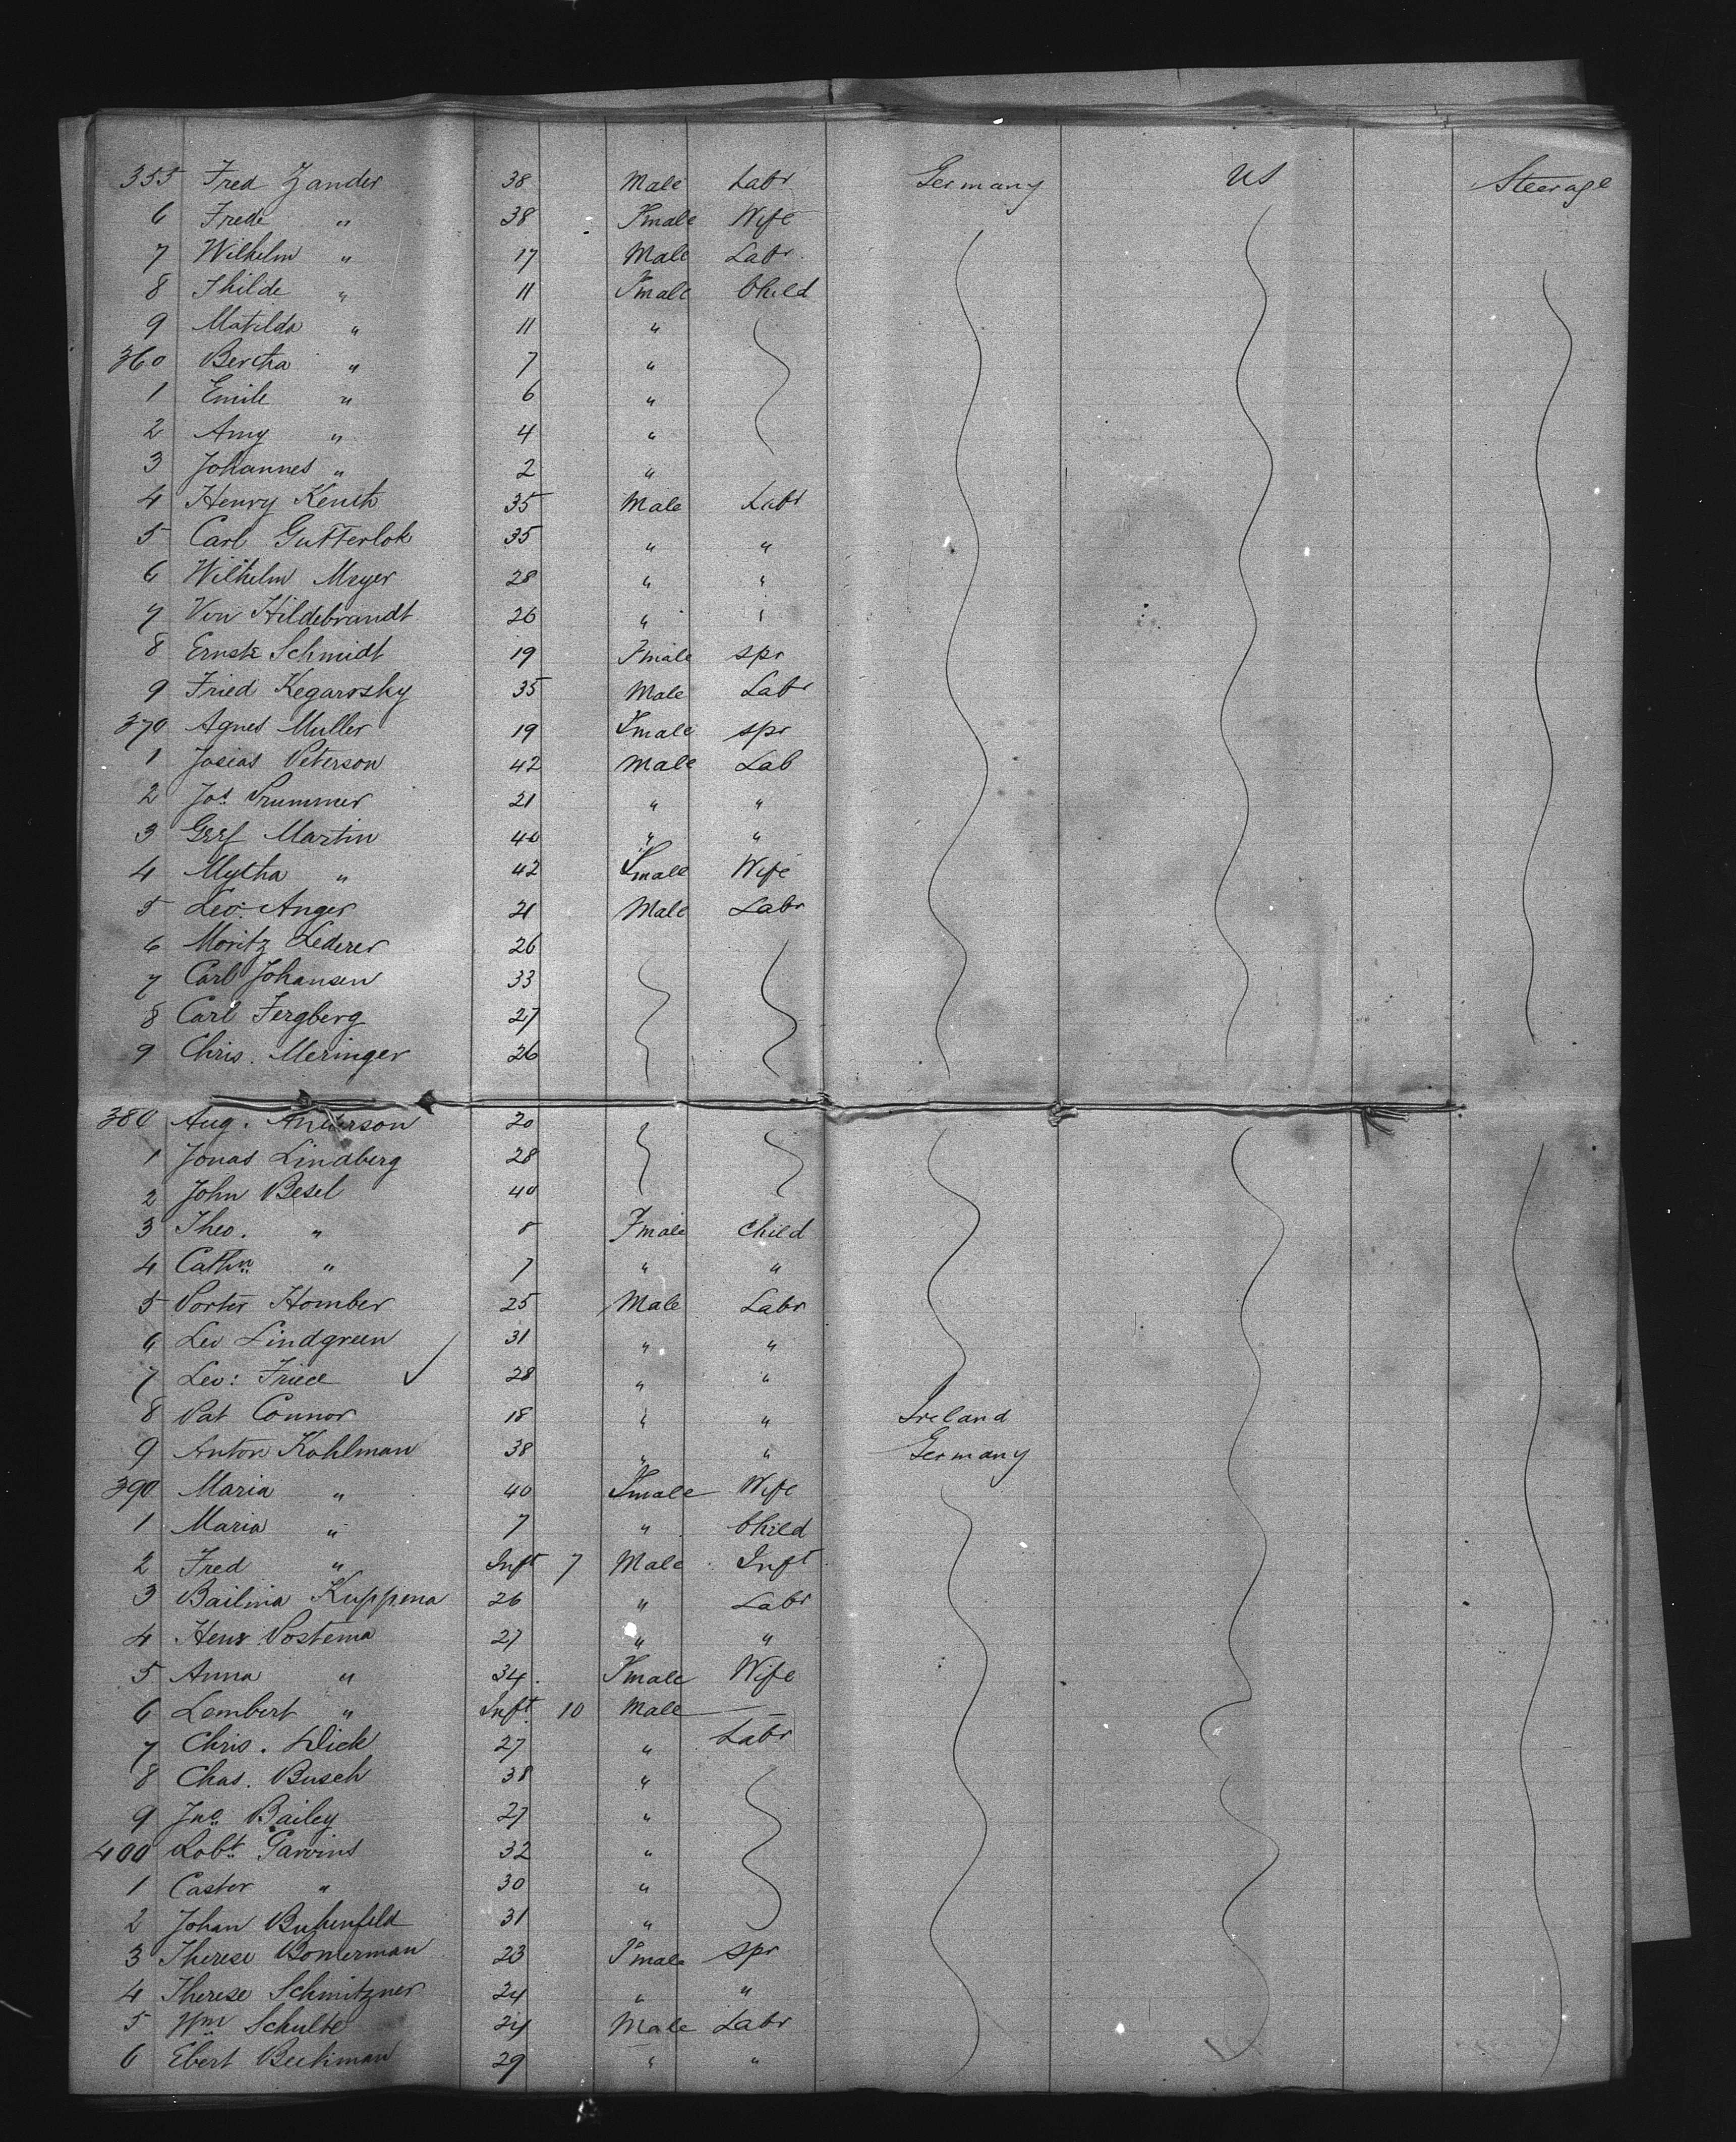 355 Fred Zander 38 Male Labr Germany US Steerage
6 Frede " 38 Fmale Wife
7 Wilhelm " 17 Male Labr
8 Thilde " 11 Fmale Child
9 Matilda " 11 "
360 Bertha " 7 "
1 Emile " 6 "
2 Amy " 4 "
3 Johannes " 2 "
4 Henry 35 Male Labr
5 Carl Gutterlok 35 " "
6 Wilhelm Meyer 28 " "
7 Von Hildebrandt 26 " "
8 Ernste Schmidt 19 Fmale spr
9 Fried Kegarosky 35 Male Labr
370 Agnes Muller 19 Fmale spr
1 Josias Peterson 42 Male Lab
2 Jos. 21 " "
3 Martin 40 " "
4 Mytha " 42 Fmale Wife
5 Leo: Anger 21 Male Labr
6 Moritz Lederer 26
7 Carl Johansen 33
8 Carl Fergberg 27
9 Chris. Meringer 26
380 Aug. Anderson 20
1 Jonas Lindberg 28
2 John Besel 40
3 Theo. " 8 Fmale Child
4 Cathn " 7 " "
5 Porter Homber 25 Male Labr
6 Leo Lindgreen 31 " "
7 Leo: 28 " "
8 Pat Connor 18 " " Ireland
9 Anton Kohlman 38 " " Germany
390 Maria " 40 Fmale Wife
1 Maria " 7 " Child
2 Fred " Inft 7 Male Inft
3 Bailina Kuppena 26 " Labr
4 Henr. Postema 27 " "
5 Anna " 34 Fmale Wife
6 Lambert " Inft 10 Male —
7 Chris. Dick 27 " Labr
8 Chas. Busch 38 "
9 Jno. Bailey 27 "
400 Robt. Garvins 32 "
1 Castor " 30 "
2 Johan 31 "
3 Therese Bonterman 23 Fmale spr
4 Therese Schmitzner 24 " "
5 Wm Schulte 24 Male Labr
6 Ebert Beekman 29 " "